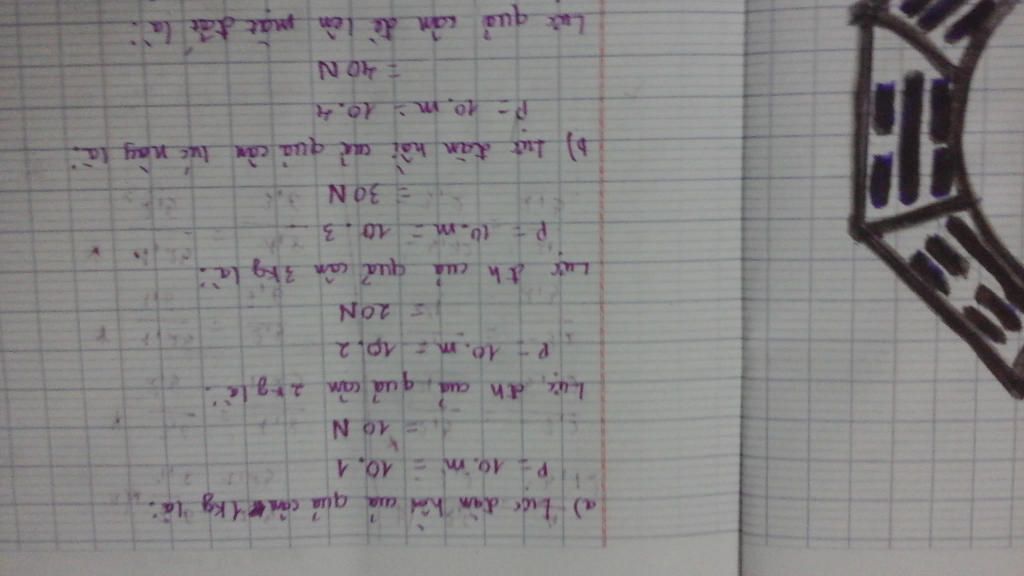 a) Lực đàn hồi của quả cân 1kg là:
P = 10.m = 10.1
= 10 N
Lực đh của quả cân 2kg là:
P = 10.m = 10.2
= 20N
Lực đh của quả cân 3kg là:
P = 10.m = 10.3
= 30N
b) Lực đàn hồi cuả quả cân lúc này là:
P = 10.m = 10.4
= 40 N
Lực quả cân đè lên mặt đất là: